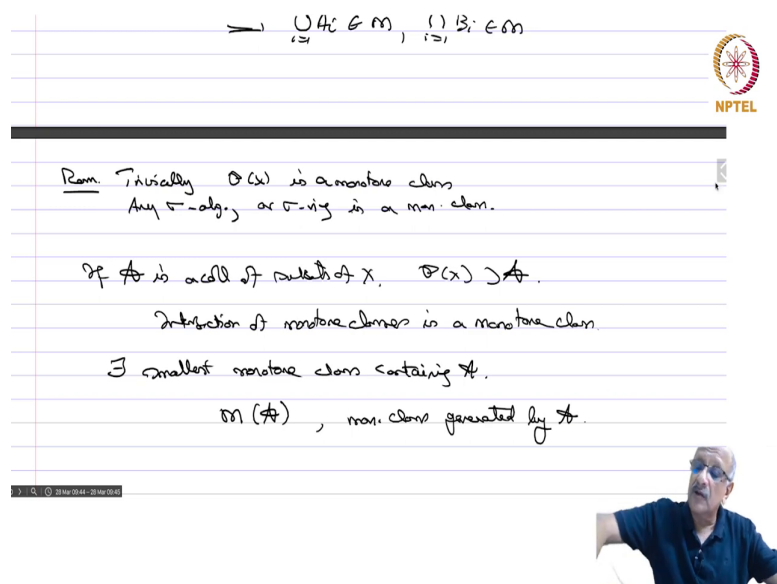 ⟹ ⋃_{i=1} A_i ∈ M, ⋂_{i=1} B_i ∈ M
NPTEL
Rem. Trivially P(X) is a monotone class
Any σ-alg., or σ-ring is a mon. class.
If A is a coll of subsets of X, P(X) ⊃ A.
Intersection of monotone classes is a monotone class
∃ smallest monotone class containing A.
M(A), mon. class generated by A.
28 Mar 09:44 – 28 Mar 09:45